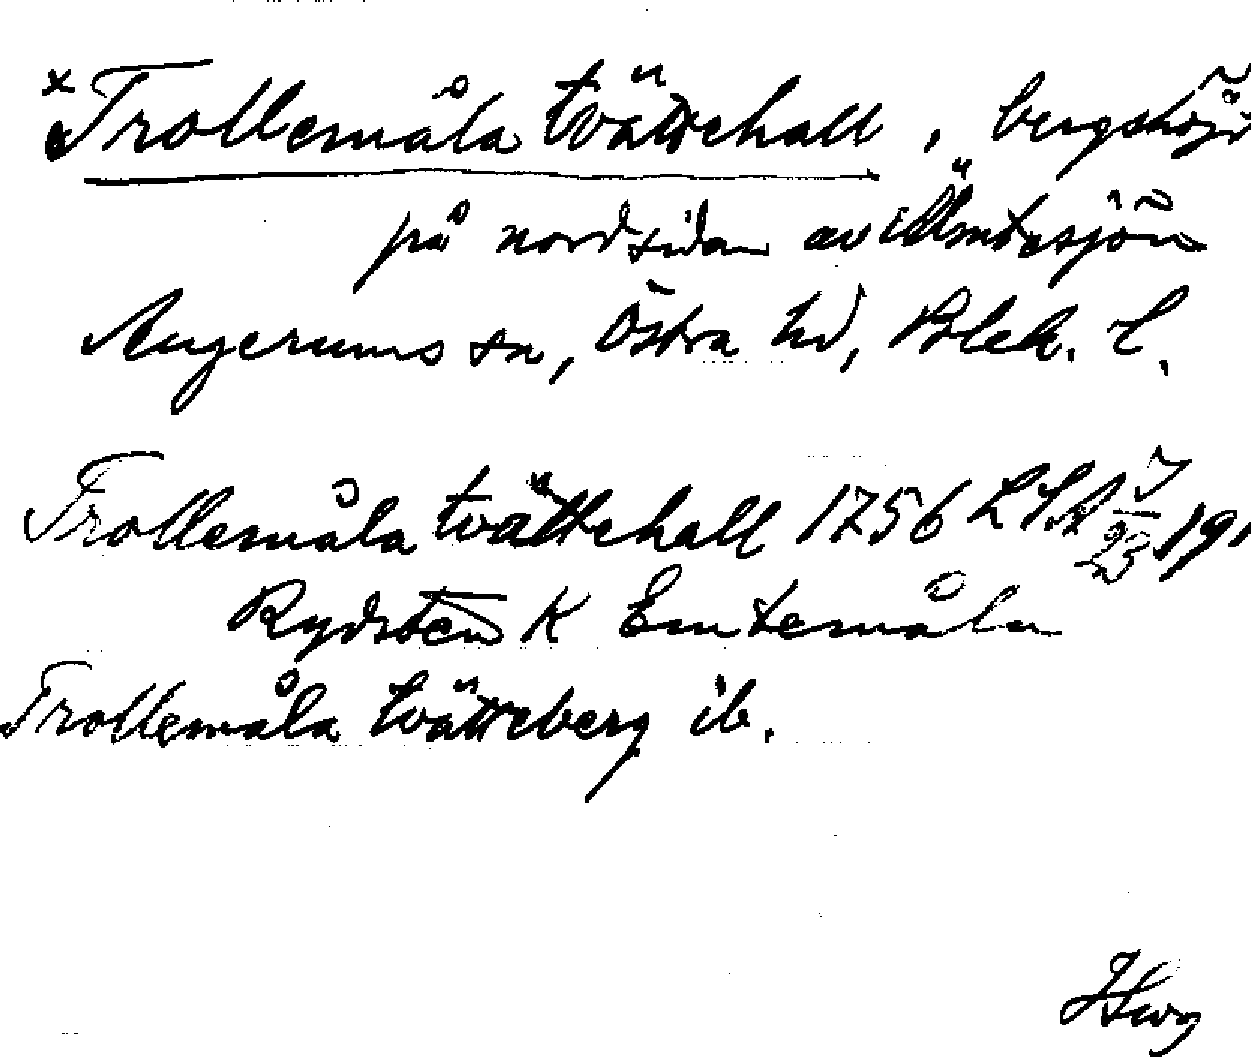 x Trollemåla tvättehall, bergshöjd
på nordsidan av Ämtesjön
Augerums sn, Östra hd, Blek. l.
Trollemåla tvättehall 1756 LSA J/23 191
Rydsten K Emtemåla
Trollemåla tvätteberg ib.